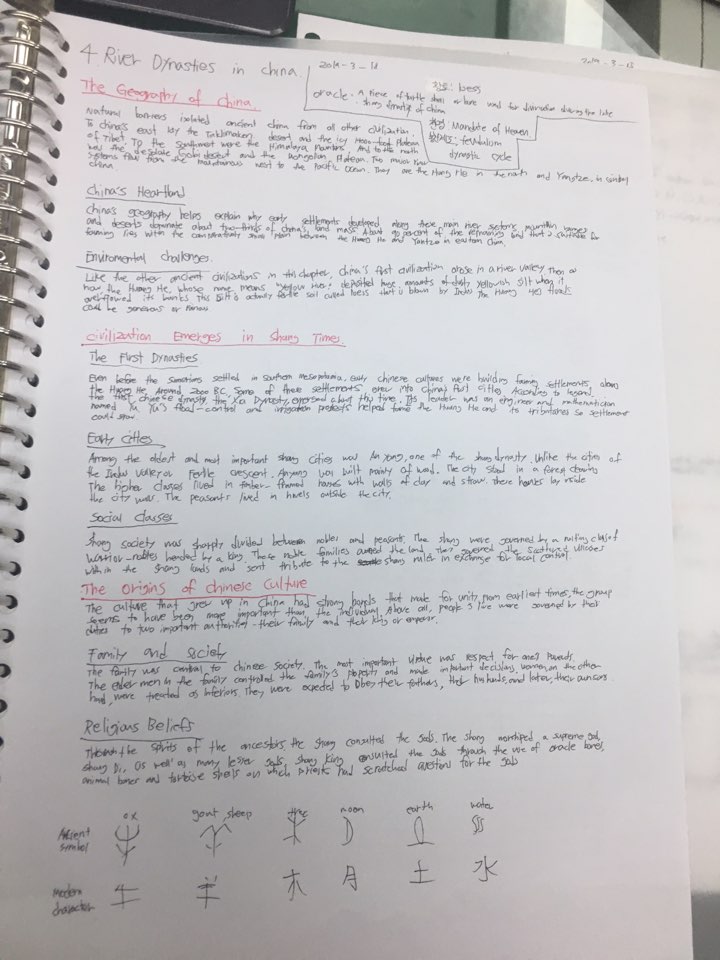 4. River Dynasties in china.
2019-3-18
2019-3-18
oracle. A piece of turtle shell or bone used for divination during the late
shang dynasty of china
황토: loess
천명: Mandate of Heaven
봉건제도: feudalism
dynastic cycle
The Geography of China.
Natural barriers isolated ancient china from all other civilization.
To china's east lay the Taklimaken desert and the icy Plateau
of Tibet. To the southwest were the Himalaya Mountains. And to the north
was the desolate Gobi desert and the Mongolian Plateau. Two major river
systems flow from the mountainous west to the Pacific Ocean. They are the Huang He in the north and Yangtze, in central
china.
China's Heartland
China's geography helps explain why early settlements developed along these main river systems. mountain ranges
and deserts dominate about two-thirds of china's land mass. About 90 percent of the remaining land that is suitable for
farming lies within the comparatively small plain between the Huang He and Yantze in eastern China.
Enviromental challenges.
Like the other ancient civilizations in this chapter, china's first civilization arose in a river valley. Then as
now the Huang He, whose name means "yellow river" deposited huge amounts of dusty yellowish silt when it
overflowed its banks. This silt is actually fertile soil called loess that is blown by The Huang Hes floods
could be generous or
civilization Emerges in Shang Times.
The First Dynasties
Even before the Sumerians settled in Southern Mesopotamia, early chinese cultures were building faming settlements along
the Huang He. Around 2000 B.C. Some of these settlements grew into China's first cities. According to legend,
the first chinese dynasty, the Xia Dynasty, emerged about this time. Its leader was an engineer and mathematician
named Yu. Yu's flood-control and irrigation projects helped tame the Huang He and its tributaries so settlement
could grow.
Early Cities
Among the oldest and most important shang cities was Anyang, one of the shang dynasty Unlike the cities of
the Indus Valley or Fertile crescent. Anyang was built mainly of wood. The city stood in a forest clearing
The higher classes lived in timber-framed houses with walls of clay and straw. These houses lay inside
the city walls. The peasants lived in hovels outside the city.
Social Classes
Shang society was sharply divided between nobles and peasants. The Shang were governed by a ruling class of
warrior-nobles headed by a king. These noble families owned the land. They governed the scattered villages
within the shang lands and sent tribute to the shang ruler in exchange for local control.
The Origins of chinese Culture
The culture that grew up in China had strong bonds that made for unity, From earliest times, the group
seems to have been more important than the individual. Above all, people's live were governed by their
duties to two important authorities-their family and their king or emperor.
Family and Society
The family was central to chinese society. The most important virtue was respect for one's Parents.
The elder men in the family controlled the family's property and made important decisions, women, on the other
hand, were treated as inferiors. They were expected to Obey their fathers, their husbands, and later, their own sons.
Religious Beliefs
Through the spirits of the ancestors the shang consulted the gods. The shang worshiped a supreme god,
shang Di, as well as many lesser gods, shang king consulted the gods through the use of oracle bones,
animal bones and tortoise shells on which priests had scratched questions for the gods
ox goat, sheep tree moon earth water
Ancient symbol
Modern character
牛 羊 木 月 土 水